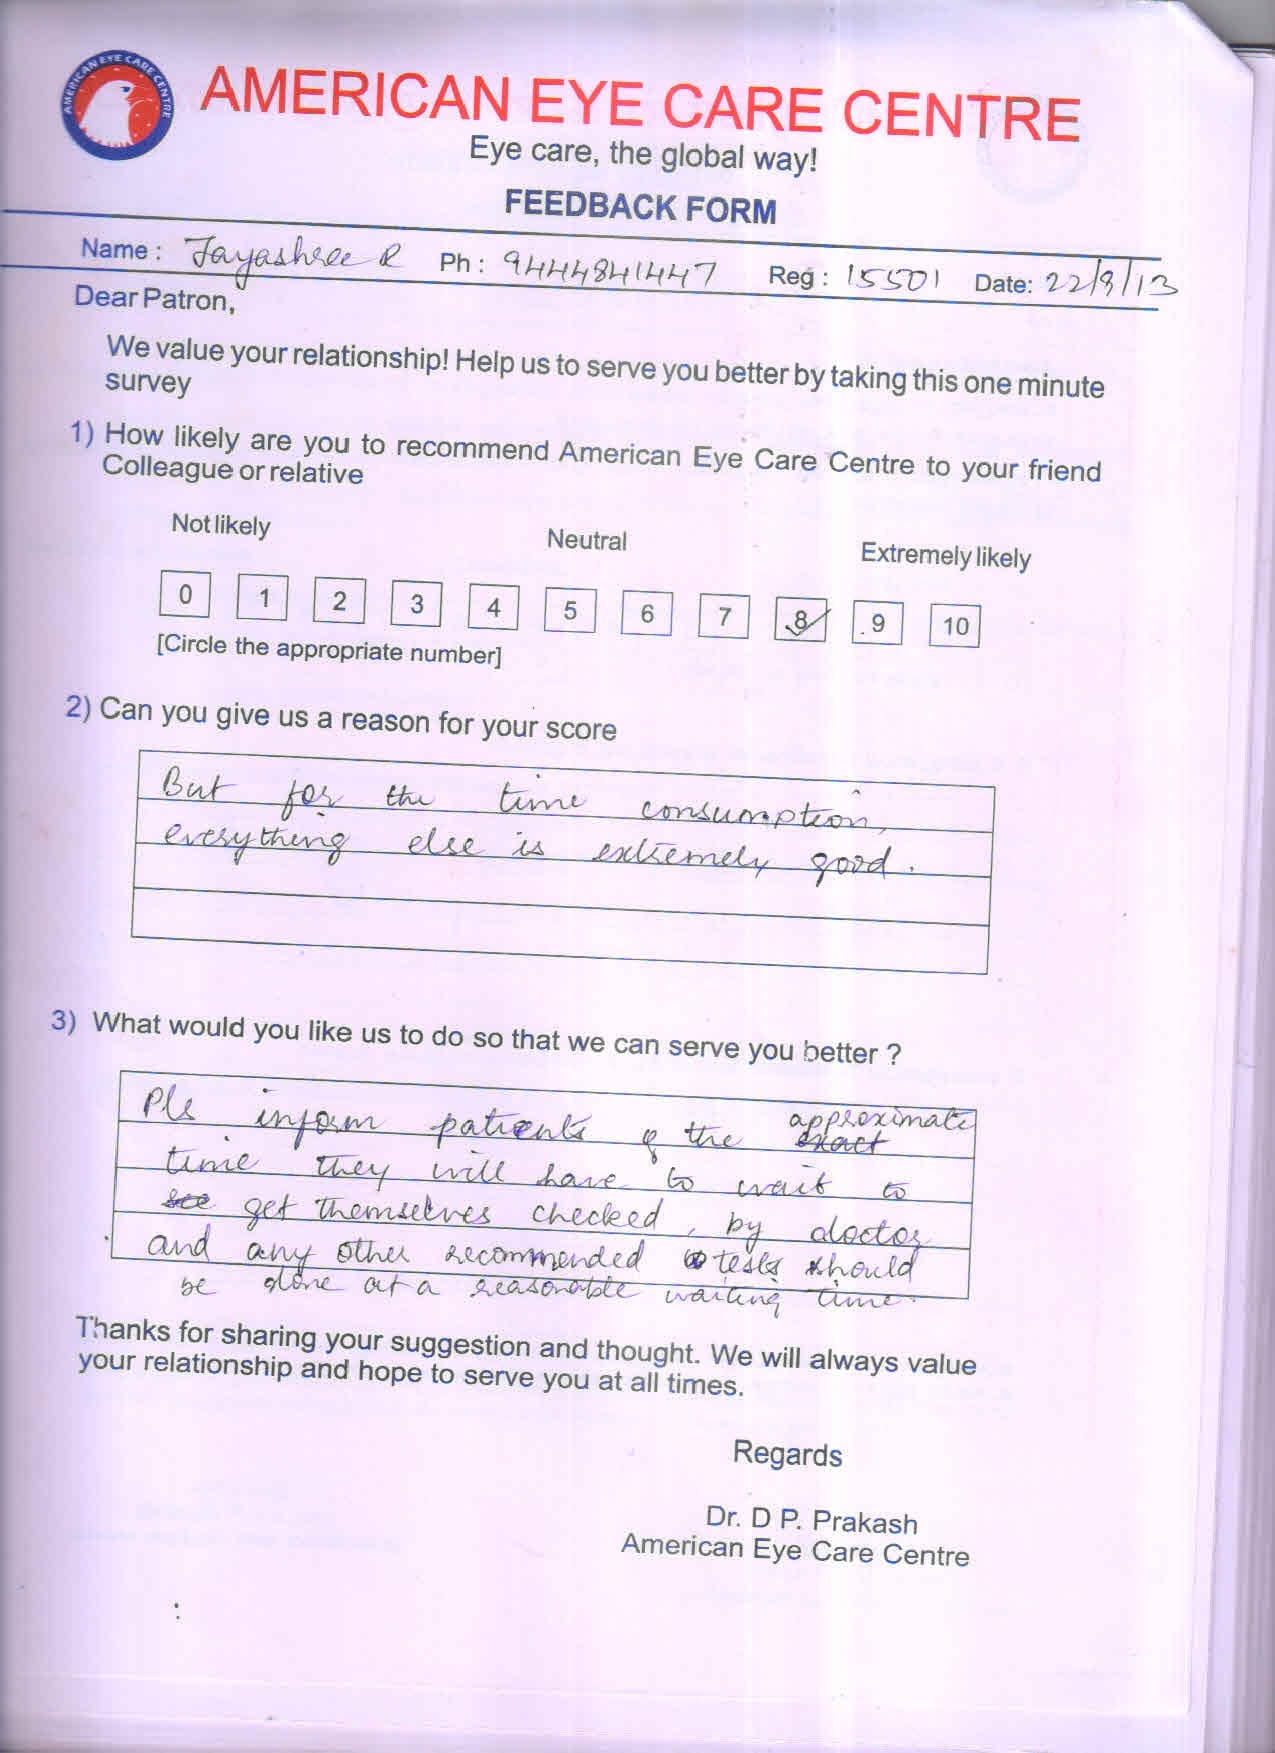 AMERICAN EYE CARE CENTRE
AMERICAN EYE CARE CENTRE
Eye care, the global way!
FEEDBACK FORM
Name : Jayashree R Ph : 9444841447 Reg : 15501 Date: 22/9/13
Dear Patron,
We value your relationship! Help us to serve you better by taking this one minute
survey
1) How likely are you to recommend American Eye Care Centre to your friend
Colleague or relative
Not likely Neutral Extremely likely
0 1 2 3 4 5 6 7 8 9 10
[Circle the appropriate number]
2) Can you give us a reason for your score
But for the time consumption,
everything else is extremely good.
3) What would you like us to do so that we can serve you better ?
Pls inform patients of the exact approximate
time they will have to wait to
see get themselves checked, by doctor
and any other recommended tests should
be done at a reasonable waiting time.
Thanks for sharing your suggestion and thought. We will always value
your relationship and hope to serve you at all times.
Regards
Dr. D P. Prakash
American Eye Care Centre